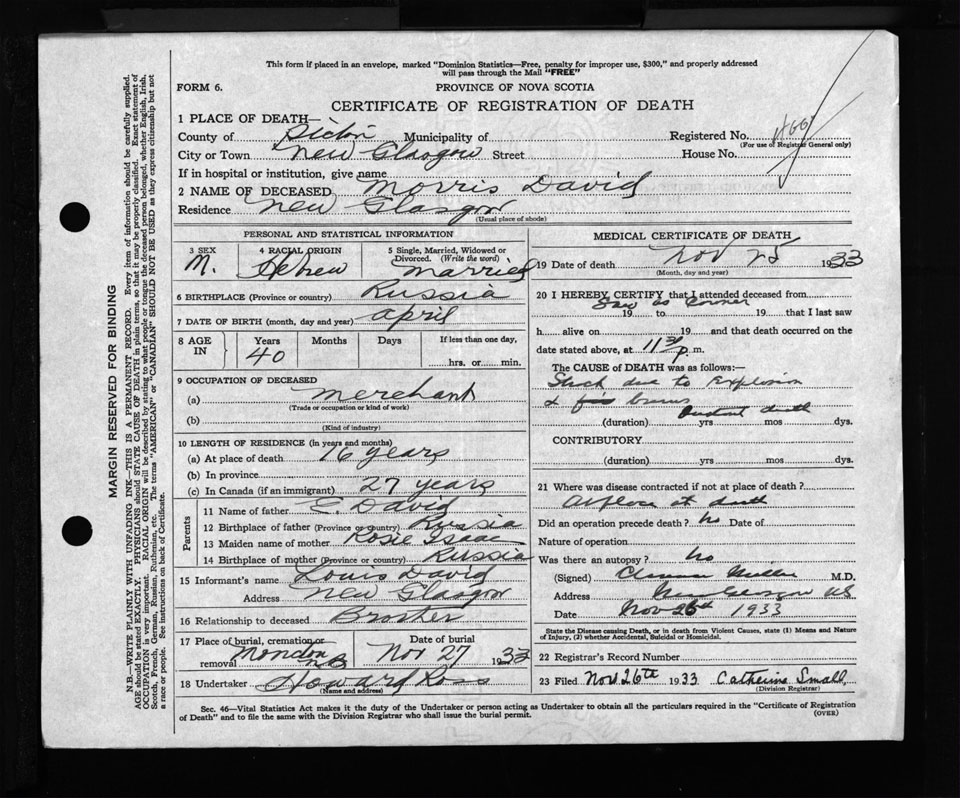 This form if placed in an envelope, marked "Dominion Statistics—Free, penalty for improper use, $300," and properly addressed
will pass through the Mail "FREE"
FORM 6.
PROVINCE OF NOVA SCOTIA
CERTIFICATE OF REGISTRATION OF DEATH
1 PLACE OF DEATH—
County of Pictou Municipality of Registered No.
(For use of Registrar General only)
City or Town New Glasgow Street House No.
If in hospital or institution, give name
2 NAME OF DECEASED Morris David
Residence New Glasgow
(Usual place of abode)
PERSONAL AND STATISTICAL INFORMATION
3 SEX M. 4 RACIAL ORIGIN Hebrew 5 Single, Married, Widowed or Divorced. (Write the word) married
6 BIRTHPLACE (Province or country) Russia
7 DATE OF BIRTH (month, day and year) April
8 AGE IN Years 40 Months Days If less than one day,
hrs. or min.
9 OCCUPATION OF DECEASED
(a) merchant
(Trade or occupation or kind of work)
(b)
(Kind of industry)
10 LENGTH OF RESIDENCE (in years and months)
(a) At place of death 16 years
(b) In province
(c) In Canada (if an immigrant) 27 years
Parents
11 Name of father E. David
12 Birthplace of father (Province or country) Russia
13 Maiden name of mother Rosie Isaac
14 Birthplace of mother (Province or country) Russia
15 Informant's name Louis David
Address New Glasgow
16 Relationship to deceased Brother
17 Place of burial, cremation or removal Moncton N.B. Date of burial Nov 27 1933
18 Undertaker Howard Ross
(Name and address)
MEDICAL CERTIFICATE OF DEATH
19 Date of death Nov 25 1933
(Month, day and year)
20 I HEREBY CERTIFY that I attended deceased from
Saw as Coroner
19 to 19 that I last saw
h alive on 19 and that death occurred on
date stated above, at 11 30 p. m.
The CAUSE of DEATH was as follows:—
Shock due to Explosion
& burns
death
(duration) yrs mos dys.
CONTRIBUTORY
(duration) yrs. mos dys.
21 Where was disease contracted if not at place of death?
At place of death
Did an operation precede death? no Date of
Nature of operation
Was there an autopsy? no
(Signed) Clarence Miller M.D.
Address New Glasgow NS
Date Nov 26th 1933
State the Disease causing Death, or in death from Violent Causes, state (1) Means and Nature
of Injury, (2) whether Accidental, Suicidal or Homicidal.
22 Registrar's Record Number
23 Filed Nov. 26th 1933 Catherine Small,
(Division Registrar)
Sec. 46—Vital Statistics Act makes it the duty of the Undertaker or person acting as Undertaker to obtain all the particulars required in the "Certificate of Registration
of Death" and to file the same with the Division Registrar who shall issue the burial permit.
(OVER)
MARGIN RESERVED FOR BINDING
N.B.—WRITE PLAINLY WITH UNFADING INK—THIS IS A PERMANENT RECORD. Every item of information should be carefully supplied.
AGE should be stated EXACTLY. PHYSICIANS should STATE CAUSE OF DEATH in plain terms, so that it may be properly classified. Exact statement of
OCCUPATION is very important. RACIAL ORIGIN will be described by stating to what people or tongue the deceased person belonged, whether English, Irish,
Scotch, French, German, Russian, Ruthenian, etc. The terms "AMERICAN" or "CANADIAN" SHOULD NOT BE USED as they express citizenship but not
a race or people. See instructions on back of Certificate.